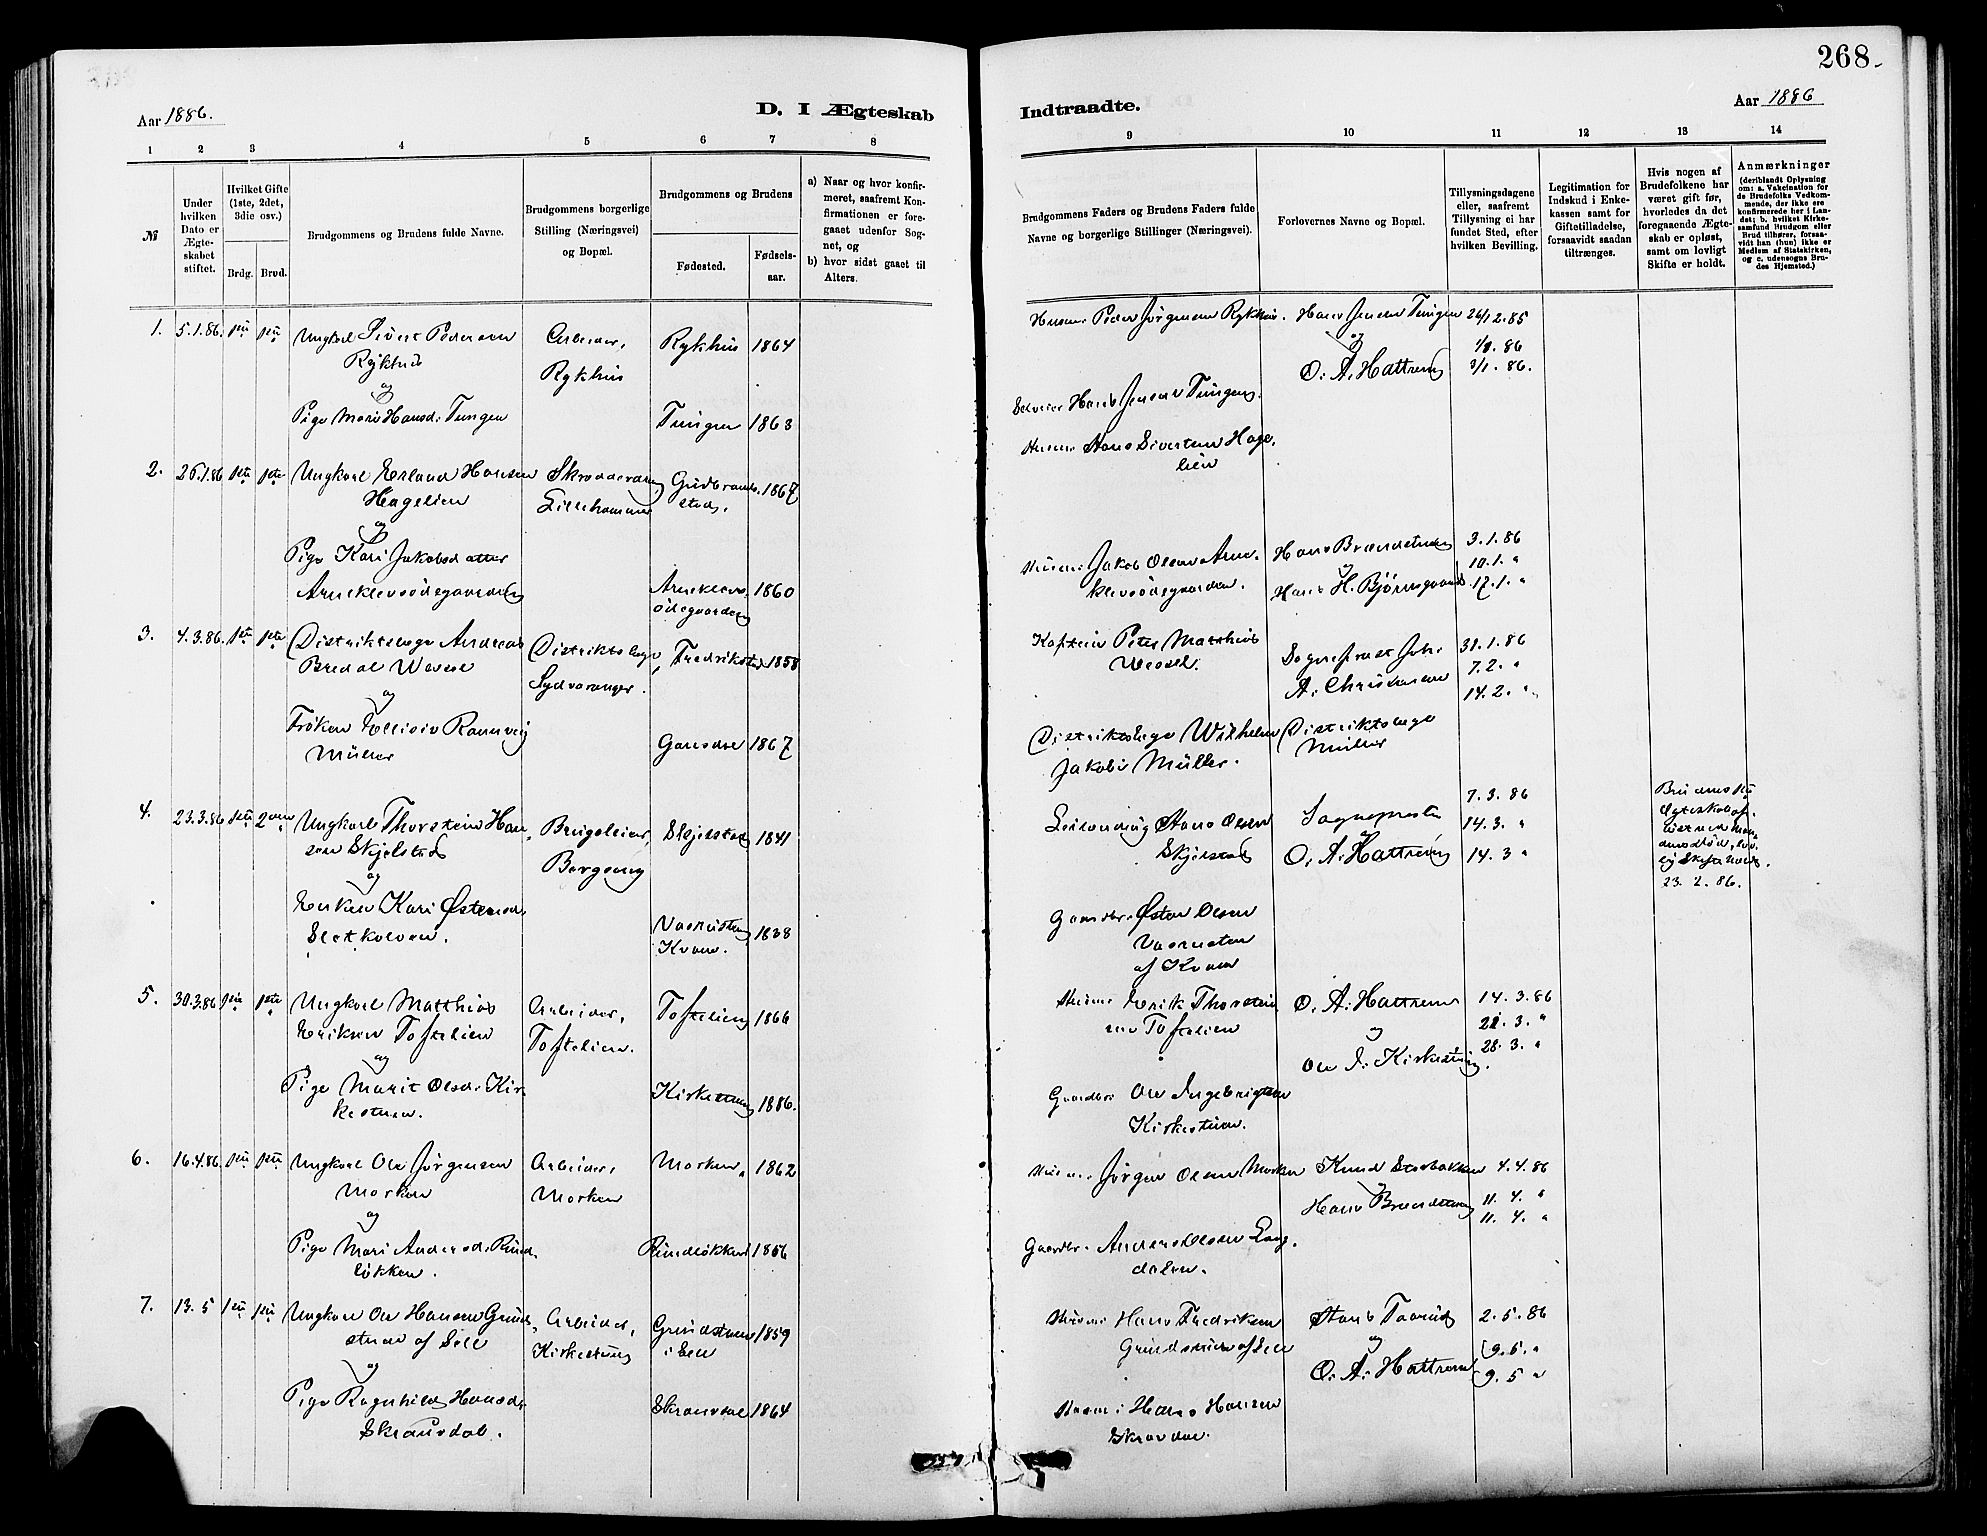 268
Aar 1886.
D. I Ægteskab
Indtraadte.
Aar 1886
1 2 3 4 5 6 7 8
9 10 11 12 13 14
№
Under hvilken Dato er Ægteskabet stiftet.
Hvilket Gifte (1ste, 2det, 3die osv.)
Brdg. Brud.
Brudgommens og Brudens fulde Navne.
Brudgommens borgerlige Stilling (Næringsvei) og Bopæl.
Brudgommens og Brudens
Fødested.
Fødselsaar.
a) Naar og hvor konfirmeret, saafremt Konfirmationen er foregaaet udenfor Sognet, og
b) hvor sidst gaaet til Alters.
Brudgommens Faders og Brudens Faders fulde Navne og borgerlige Stillinger (Næringsvei).
Forlovernes Navne og Bopæl.
Tillysningsdagene eller, saafremt Tillysning ei har fundet Sted, efter hvilken Bevilling.
Legitimation for Indskud i Enkekassen samt for Giftetilladelse, forsaavidt saadan tiltrænges.
Hvis nogen af Brudefolkene har været gift før, hvorledes da det foregaaende Ægteskab er opløst, samt om lovligt Skifte er holdt.
Anmærkninger
(deriblandt Oplysning om: a. Vakcination for de Brudefolks Vedkommende, der ikke ere konfirmerede her i Landet; b. hvilket Kirkesamfund Brudgom eller Brud tilhører, forsaavidt han (hun) ikke er Medlem af Statskirken, og c. udensogns Brudes Hjemsted.)
1. 5.1.86. 1ste 1ste Ungkarl Sivert Pedersen Arbeider, Rykhus 1864
Rykhus Rykhus
og
Pige Mari Hansd. Tungen Tungen 1863
Husm. Peder Jørgensen Rykhus. Hans Jensen Tungen 26/12.85
og 1/1.86
O. A. Hattrem 3/1.86.
Selveier Hans Jensen Tungen.
2. 26.1.86 1ste 1ste Ungkarl Erland Hansen Skrædersvend Gudbrands- 1867
Hagelien Lillehammer stad.
og
Pige Kari Jakobsdatter
Arneklevsødegaarden Arneklevs- 1860
ødegaarden
Husm. Hans Sivertsen Hage-
lien
Husm. Jakob Olsen Arne- Hans Brændstuen 3.1.86
klevsødegaarden. og 10.1. "
Hans H. Bjørnsgaard 17.1. "
3. 4.3.86. 1ste 1ste Distriktslæge Andreas Distriktslæge, Fredrikstad 1858
Bredal Wessel Sydvaranger.
og
Frøken Ellisiv Rannveig
Müller Gausdal 1867
Kaptein Peter Matthias Sogneprest Joh. 31.1.86
Wessel. A. Christensen 7.2. "
14.2. "
Distriktslæge Wilhelm Distriktslæge
Jakobi Müller. Müller
4. 23.3.86 1ste 2den Ungkarl Thorstein Han- Brugseier, Skjelstad 1841
sen Skjelstad Borgeng
og
Enken Kari Østensd.
Sletkolven. Vasrusten 1838
Kvam.
Leilænding Hans Olsen Sognepresten 7.3.86
Skjelstad O. A. Hattrem 14.3. "
14.3 "
Gaardbr. Østen Olsen
Vasrusten
af Kvam
Brudens 1ste
Ægteskab op-
løst ved Man-
dens død, lov-
lig Skifte holdt.
23.2.86.
5. 30.3.86 1ste 1ste Ungkarl Matthias Arbeider, Toftelien 1866
Eriksen Toftelien Toftelien.
og
Pige Marit Olsd. Kir-
kestuen. Kirkestuen 1886.
Husm. Erik Thorstein- O. A. Hattrem 14.3.86
sen Toftelien og 21.3. "
Ole I. Kirkestuen. 28.3. "
Gaardbr. Ole Ingebrigtsen
Kirkestuen.
6. 16.4.86. 1ste 1ste Ungkarl Ole Jørgensen Arbeider, Morken. 1862
Morken Morken
og
Pige Mari Andersd. Rund- Rundløkken 1856
løkken.
Husm. Jørgen Olsen Morken Knud Storbakken 4.4.86
Hans Brændstuen 11. 4. "
11. 4. "
Gaardbr. Anders Olsen Lang-
dalen.
7. 13.5 1ste 1ste Ungkarl Ole Hansen Grind- Arbeider, Grindstuen 1859
stuen af Sell Kirkestuen i Sell
og
Pige Ragnhild Hansd.
Skravdal. Skravdal 1864
Husm. Hans Fredriksen Hans Taarud 2.5.86
Grindstuen af Sell og (9.5. "
O. A. Hattrem (9.5 "
Husm. Hans Hansen
Skravdal.